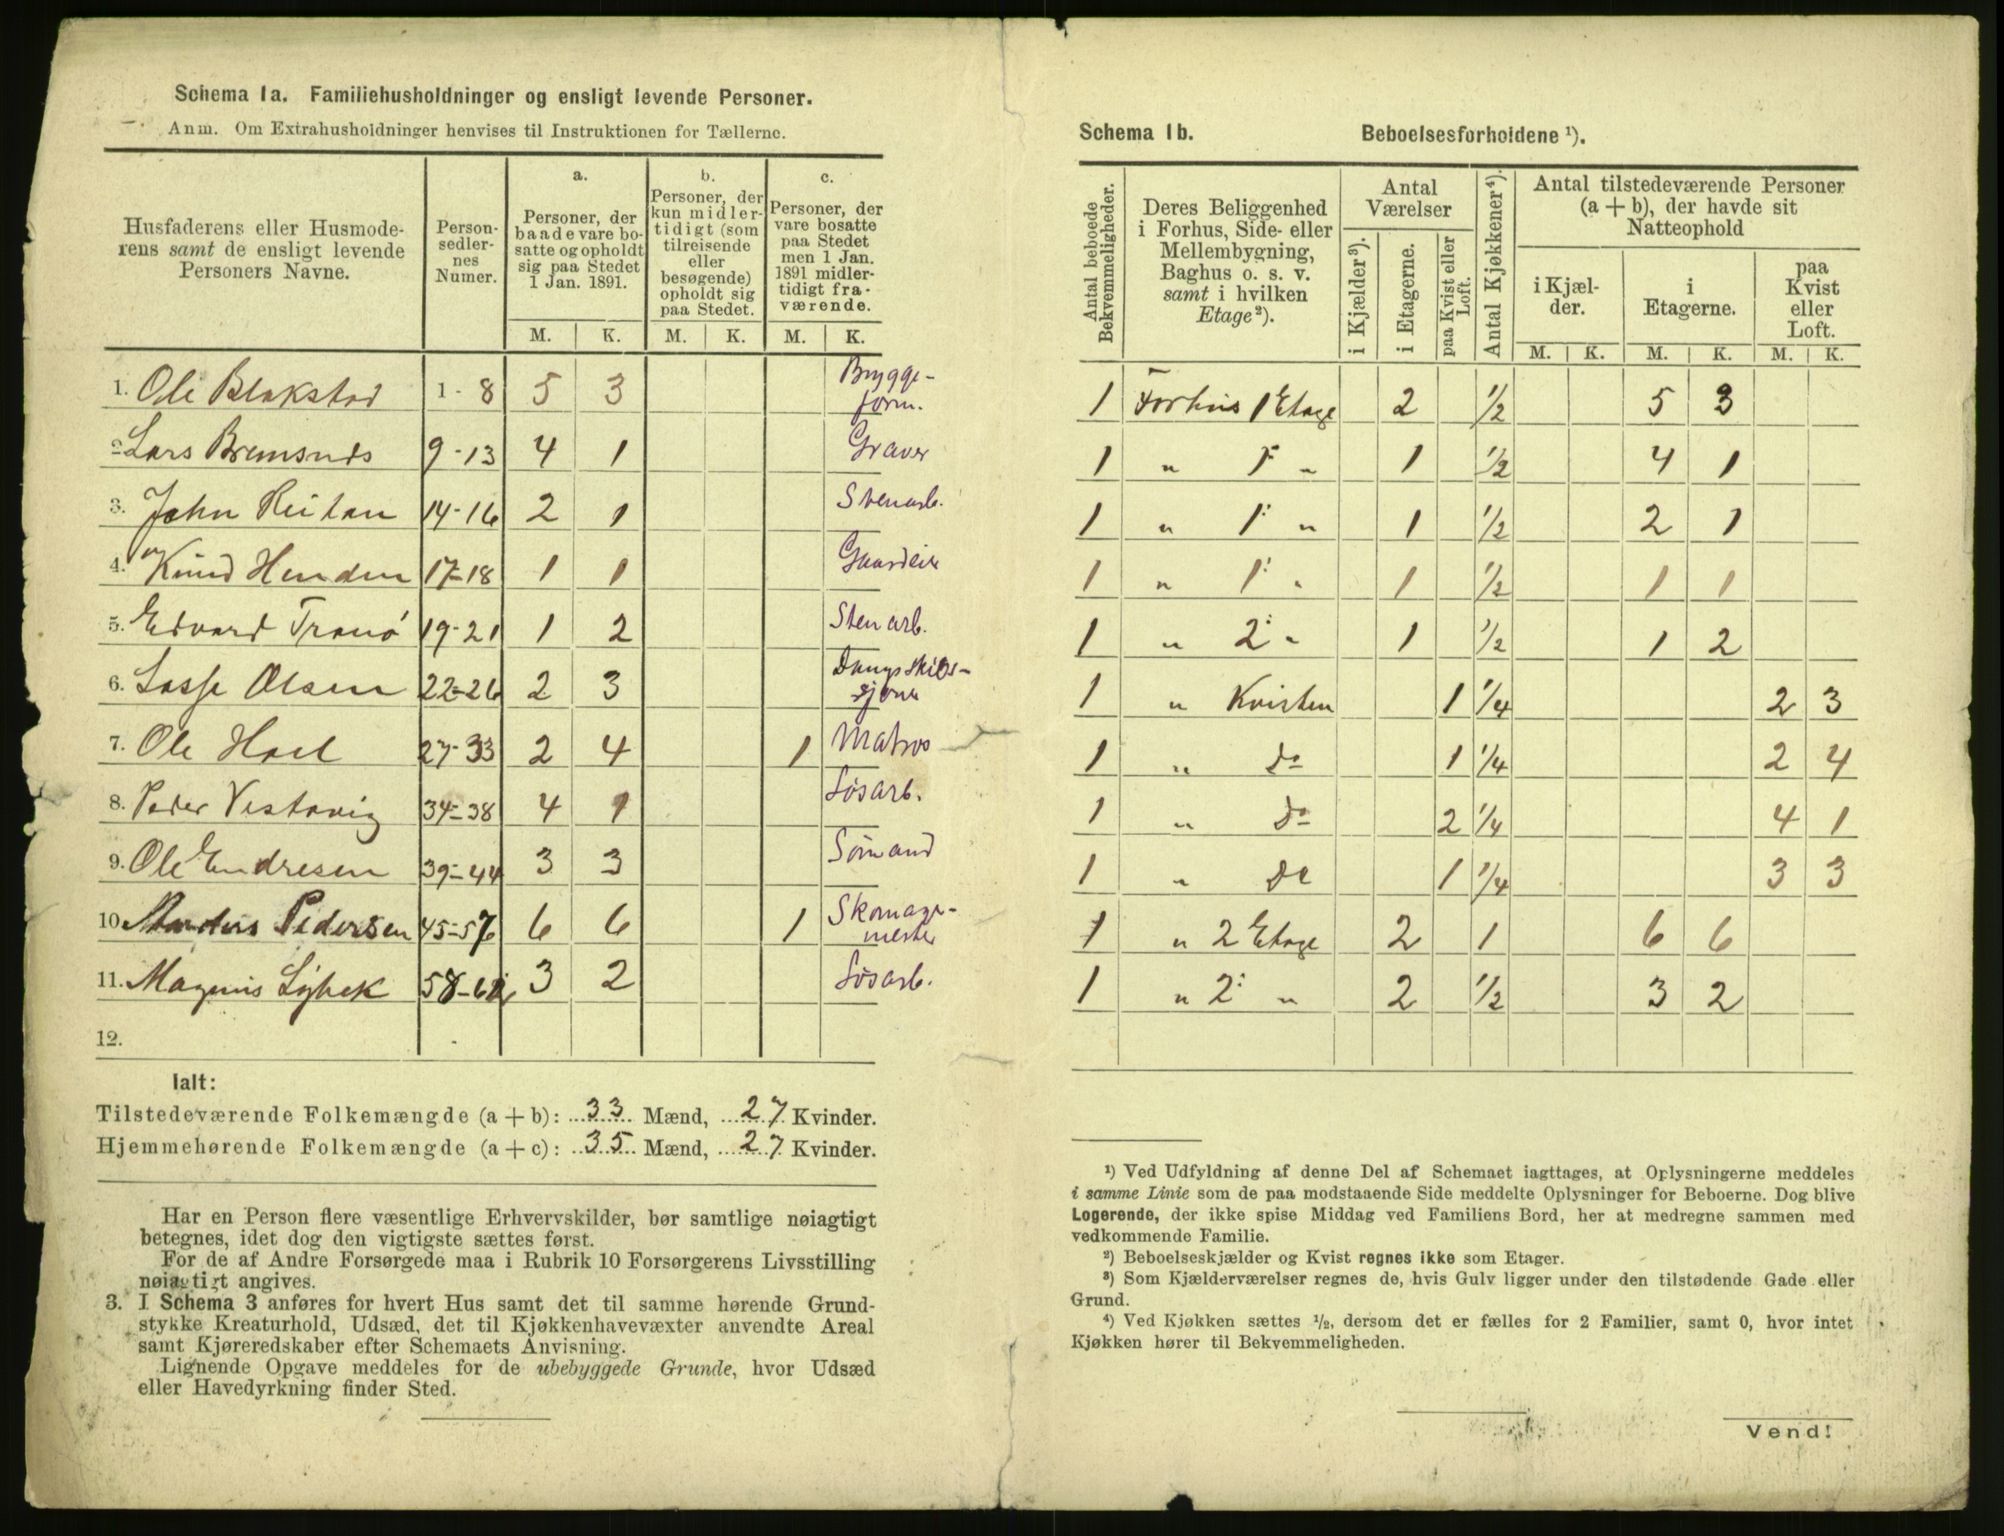 Schema 1a. Familiehusholdninger og ensligt levende Personer.
Anm. Om Extrahusholdninger henvises til Instruktionen for Tællerne.
Husfaderens eller Husmode-
rens samt de ensligt levende
Personers Navne.
Person-
sedler-
nes
Numer.
a.
Personer, der
baade vare bo-
satte og opholdt
sig paa Stedet
1 Jan. 1891.
b.
Personer, der
kun midler-
tidigt (som
tilreisende
eller
besøgende)
opholdt sig
paa Stedet.
c.
Personer, der
vare bosatte
paa Stedet
men 1 Jan.
1891 midler-
tidigt fra-
værende.
M. K. M. K. M. K.
1. Ole Blakstad 1 - 8 5 3 Brygge-
form.
2. Lars Bremsnes 9-13 4 1 Graver
3. John Reitan 14-16 2 1 Stenarb.
4. Knud Henden 17-18 1 1 Gaardeier
5. Edvard Tranø 19-21 1 2 Stenarb.
6. Lasse Olsen 22-26 2 3 Dampskibs-
7. Ole Hoel 27-33 2 4 1 Matros
8. Peder Vestavig 34-38 4 1 Løsarb.
9. Ole Endresen 39-44 3 3 Sømand
10. Anders Pedersen 45-57 6 6 1 Skomager-
mester
11. Magnus Lybek 58-62 3 2 Løsarb.
12.
Ialt:
Tilstedeværende Folkemængde (a + b): 33 Mænd, 27 Kvinder.
Hjemmehørende Folkemængde (a + c): 35 Mænd, 27 Kvinder.
Har en Person flere væsentlige Erhvervskilder, bør samtlige nøiagtigt
betegnes, idet dog den vigtigste sættes først.
For de af Andre Forsørgede maa i Rubrik 10 Forsørgerens Livsstilling
nøiagtigt angives.
3. I Schema 3 anføres for hvert Hus samt det til samme hørende Grund-
stykke Kreaturhold, Udsæd, det til Kjøkkenhavevæxter anvendte Areal
samt Kjøreredskaber efter Schemaets Anvisning.
Lignende Opgave meddeles for de ubebyggede Grunde, hvor Udsæd
eller Havedyrkning finder Sted.
Schema 1b. Beboelsesforholdene ¹).
Antal beboede
Bekvemmeligheder.
Deres Beliggenhed
i Forhus, Side- eller
Mellembygning,
Baghus o. s. v.
samt i hvilken
Etage²).
Antal
Værelser
i Kjælder³).
i Etagerne.
paa Kvist eller
Loft.
Antal Kjøkkener⁴).
Antal tilstedeværende Personer
(a + b), der havde sit
Natteophold
i Kjæl-
der.
i
Etagerne.
paa
Kvist
eller
Loft.
M. K. M. K. M. K.
1 Forhus 1 Etage 2 1/2 5 3
1 " 1 " 1 1/2 4 1
1 " 1: " 1 1/2 2 1
1 " 1: " 1 1/2 1 1
1 " 2: " 1 1/2 1 2
1 " Kvisten 1 1/4 2 3
1 " do 1 1/4 2 4
1 " do 2 1/4 4 1
1 " do 1 1/4 3 3
1 " 2 Etage 2 1 6 6
1 " 2: " 2 1/2 3 2
¹) Ved Udfyldning af denne Del af Schemaet iagttages, at Oplysningerne meddeles
i samme Linie som de paa modstaaende Side meddelte Oplysninger for Beboerne. Dog blive
Logerende, der ikke spise Middag ved Familiens Bord, her at medregne sammen med
vedkommende Familie.
²) Beboelseskjælder og Kvist regnes ikke som Etager.
³) Som Kjælderværelser regnes de, hvis Gulv ligger under den tilstødende Gade eller
Grund.
⁴) Ved Kjøkken sættes ½, dersom det er fælles for 2 Familier, samt 0, hvor intet
Kjøkken hører til Bekvemmeligheden.
Vend!